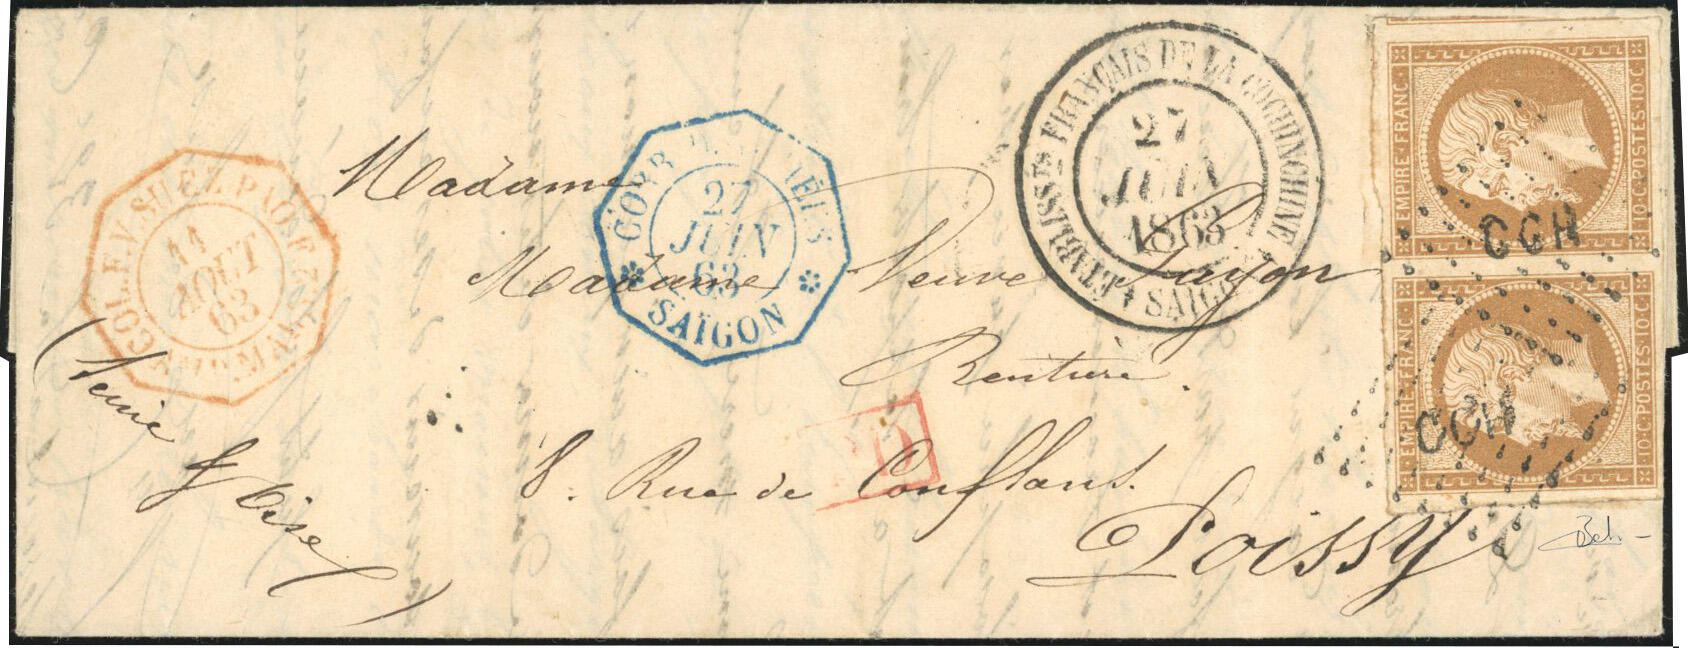 Madame
Madame Veuve Fayon
Rentière.
8. Rue de Conflans.
Poissy
(Seine
& Oise)
COL. F. V. SUEZ PAQ. F.
11
AOUT
63
CORR. D. ARMÉES
27
JUIN
63
SAÏGON
ÉTABLISSTS FRANÇAIS DE LA COCHINCHINE
27
JUIN
1863
SAIGON
PD
EMPIRE · FRANC ·
10 · C · POSTES · 10 · C
CCH
EMPIRE · FRANC ·
10 · C · POSTES · 10 · C
CCH